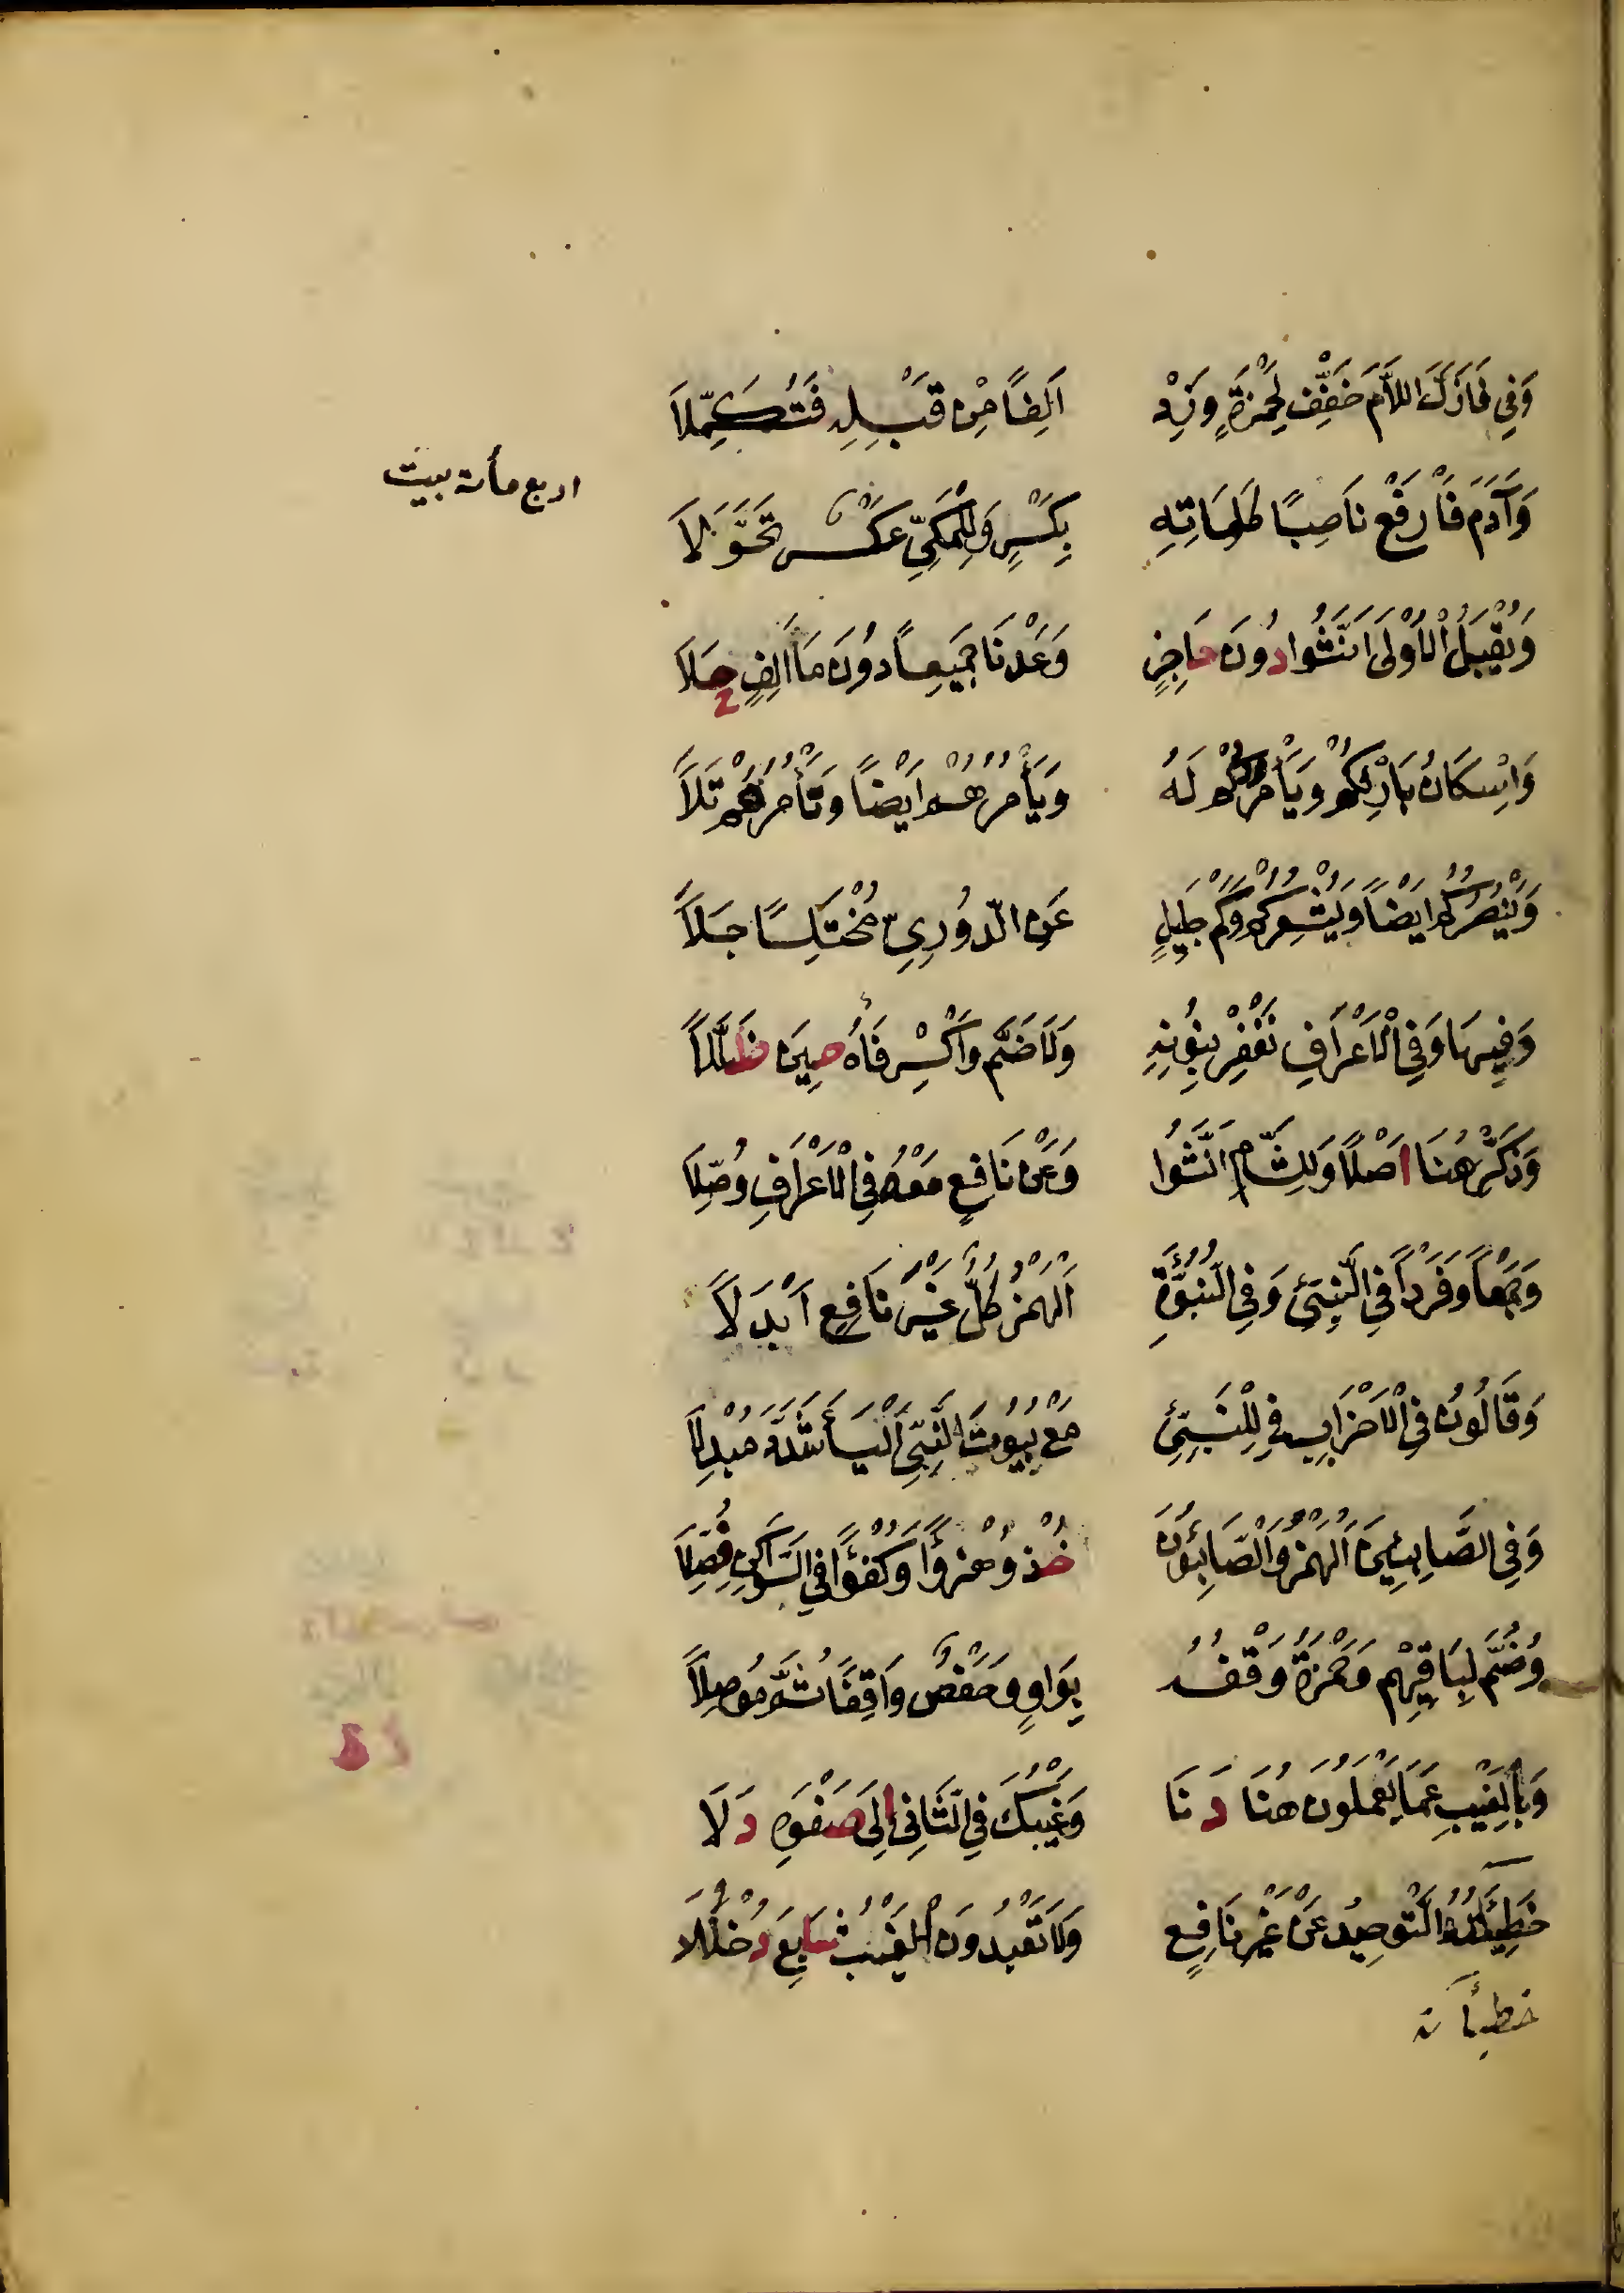 وَفِي فَأَزَلَّ اللَّامَ خَفِّفْ لِحَمْزَةٍ وَزِدْ اَلِفًا مِنْ قَبْلِهِ فَتُكَمِّلَا
وَآدَمَ فَارْفَعْ نَاصِبًا كَلِمَاتِهِ بِكَسْرٍ وَلِلْمَكِّيِّ عَكْسٌ تَحَوَّلَا
اربع مأة بيت
وَيُقْبَلُ الْاُوْلَى اَنَّثُوا دُونَ حَاجِزٍ وَعَدْنَا جَمِيعًا دُونَ مَا اَلِفٍ حَلَا
وَاِسْكَانُ بَارِئْكُمْ وَيَأْمُرْكُمْ لَهُ وَيَأْمُرْهُمْ اَيْضًا وَتَأْمُرْهُمْ تَلَا
وَيَنْصُرْكُمْ اَيْضًا وَيُشْعِرْكُمْ وَكَمْ جَلِيلٍ عَنِ الدُّورِيِّ مُخْتَلِسًا جَلَا
وَفِيهَا وَفِي الْاَعْرَافِ نَغْفِرْ بِنُونِهِ وَلَا ضَمَّ وَاكْسِرْ فَاءَهُ حِينَ ظَلَّلَا
وَذَكِّرْ هُنَا اَصْلًا وَلِلشَّامِ اَنَّثُوا وَعَنْ نَافِعٍ مَعْهُ فِي الْاَعْرَافِ وُصِّلَا
وَجَمْعًا وَفَرْدًا فِي النَّبِيْءِ وَفِي النُّبُوءَةِ اَلْهَمْزَ كُلٌّ غَيْرَ نَافِعٍ اَبْدَلَا
وَقَالُونُ فِي الْاَحْزَابِ فِي لِلنَّبِيِّ مَعْ بُيُوتَ النَّبِيِّ اَلْيَاءَ شَدَّدَ مُبْدِلَا
وَفِي الصَّابِئِينَ اَلْهَمْزُ وَالصَّابِئُونَ خُذْ وَهُزْؤًا وَكُفْؤًا فِي السَّوَاكِنِ فُصِّلَا
وَضُمَّ لِبَاقِيهِمْ وَحَمْزَةُ وَقْفُهُ بِوَاوٍ وَحَفْصٌ وَاقِفًا ثُمَّ مُوصِلَا
وَبِالْغَيْبِ عَمَّا يَعْمَلُونَ هُنَا دَنَا وَغَيْبُكَ فِي الثَّانِي اِلَى صَفْوِهِ دَلَا
خَطِيئَتُهُ التَّوْحِيدُ عَنْ غَيْرِ نَافِعٍ وَلَا تَعْبُدُونَ الْغَيْبُ شَايَعَ دُخْلُلَا
خطيأته